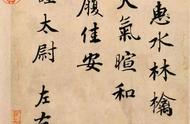 惠水林檎
天氣暄和
履佳安
謹太尉左右